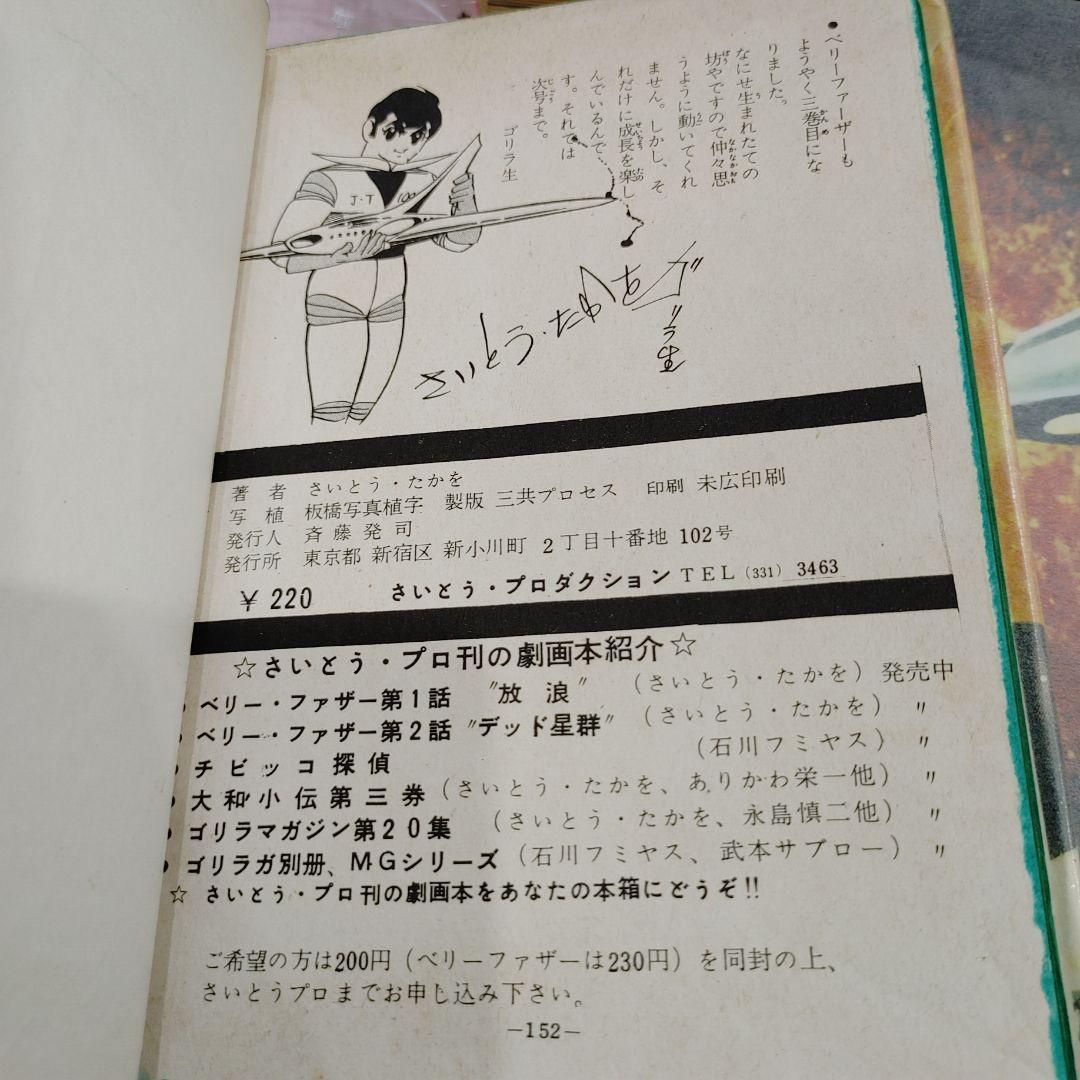 ●ベリーファーザーも
ようやく三巻目にな
りました。
なにせ生まれたての
坊やですので仲々思
うように動いてくれ
ません。しかし、そ
れだけに成長を楽し
んでいるんで
す。それでは
次号まで。
ゴリラ生
J・T 100
さいとう・たかを
ゴリラ生
著者 さいとう・たかを
写植 板橋写真植字 製版 三共プロセス 印刷 末広印刷
発行人 斉藤発司
発行所 東京都 新宿区 新小川町 2丁目十番地 102号
¥220 さいとう・プロダクション TEL (331) 3463
☆さいとう・プロ刊の劇画本紹介☆
・ベリー・ファザー第1話 〝放浪〟 (さいとう・たかを) 発売中
・ベリー・ファザー第2話 〝デッド星群〟 (さいとう・たかを) 〃
・チビッコ探偵 (石川フミヤス) 〃
・大和小伝第三券 (さいとう・たかを、ありかわ栄一他) 〃
・ゴリラマガジン第20集 (さいとう・たかを、永島慎二他) 〃
・ゴリラガ別册、MGシリーズ (石川フミヤス、武本サブロー) 〃
☆ さいとう・プロ刊の劇画本をあなたの本箱にどうぞ!!
ご希望の方は200円(ベリーファザーは230円)を同封の上、
さいとうプロまでお申し込み下さい。
—152—